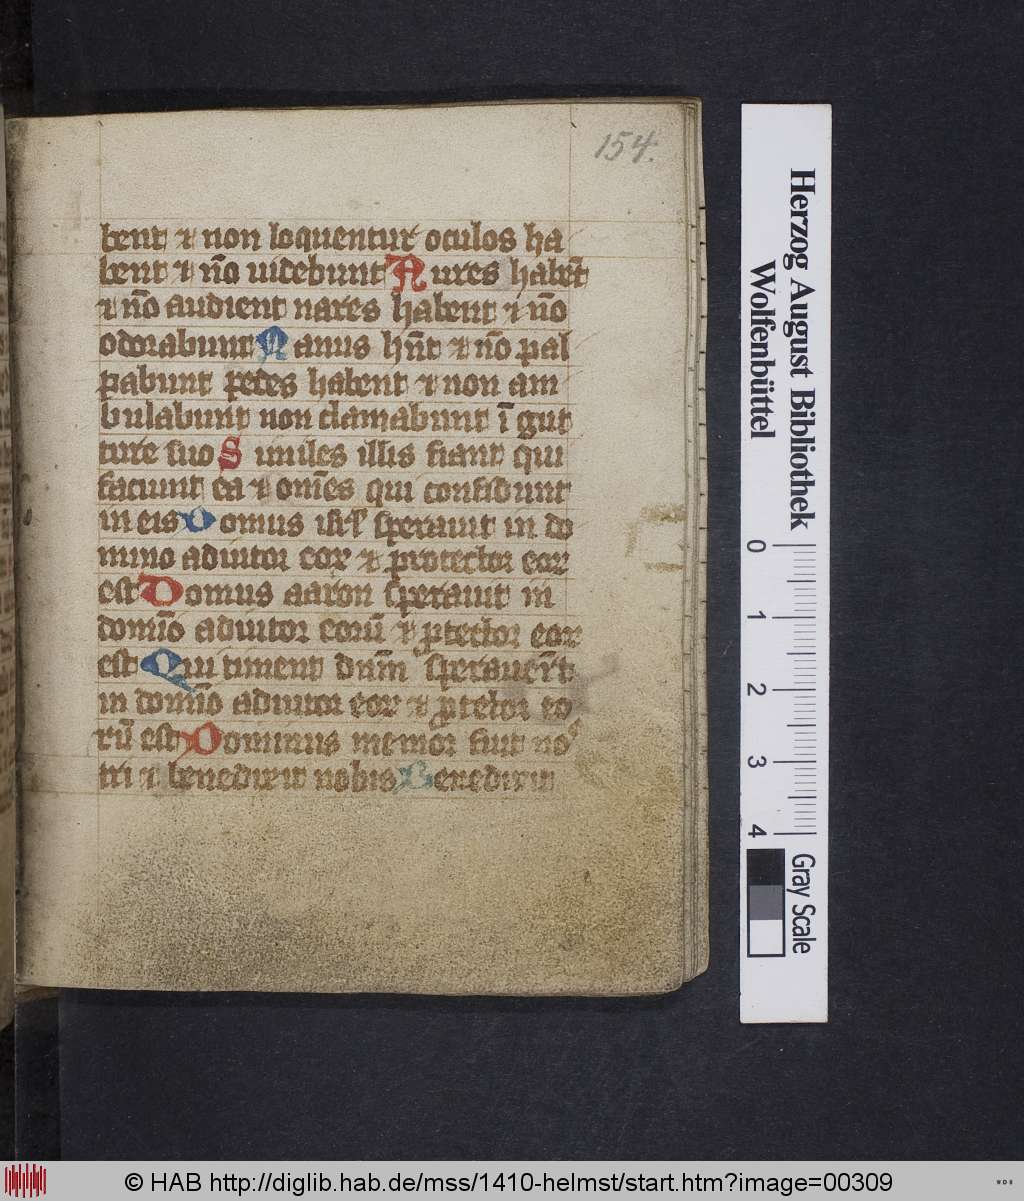 154.
bent et non loquentur oculos ha
bent et nō uidebunt Aures habēt
et nō audient nares habent et nō
odorabunt Manus hn̄t et nō pal
pabunt pedes habent et non am
bulabunt non clamabunt ī gut
ture suo Similes illis fiant qui
faciunt ea et om̄es qui confidunt
in eis Domus isrl̄ sperauit in do
mino adiutor eor et protector eor
est Domus aaron sperauit in
domīo adiutor eorū et ꝓtector eor
est Qui timent dnm̄ sperauer̄t
in domīo adiutor eor et ꝓtector eo
rū est Dominus memor fuit no
tri et benedixit nobis Benedixit
Herzog August Bibliothek
Wolfenbüttel
0 1 2 3 4
Gray Scale
© HAB http://diglib.hab.de/mss/1410-helmst/start.htm?image=00309